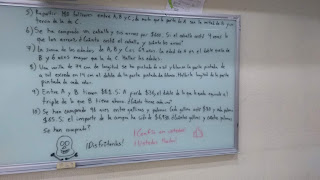 5) Repartir 180 bollones entre A, B y C, de modo que la parte de A sea la mitad de la de B y un
tercio de la de C.
6) Se han comprado un caballo y sus arreos por $600. Si el caballo costó 4 veces lo
que los arreos ¿Cuánto costó el caballo y cuánto los arreos?
7) La suma de las edades de A, B y C es 69 años. La edad de A es el doble que la de
B y 6 años mayor que la de C. Hallar las edades.
8) Una varilla de 74 cm de longitud se ha pintado de azul y blanco. La parte pintada de
azul excede en 14 cm al doble de la parte pintada de blanco. Hallar la longitud de la parte
pintada de cada color.
9) Entre A y B tienen $81. Si A pierde $36, el doble de lo que le queda equivale al
triple de lo que B tiene ahora. ¿Cuánto tiene cada uno?
10) Se han comprado 96 aves entre gallinas y palomas. Cada gallina costó $80 y cada paloma
$65. Si el importe de la compra ha sido de $6930 ¿Cuántas gallinas y cuántas palomas
se han comprado?
¡Disfrútenlos!
¡Confío en ustedes!
¡Ustedes Pueden!